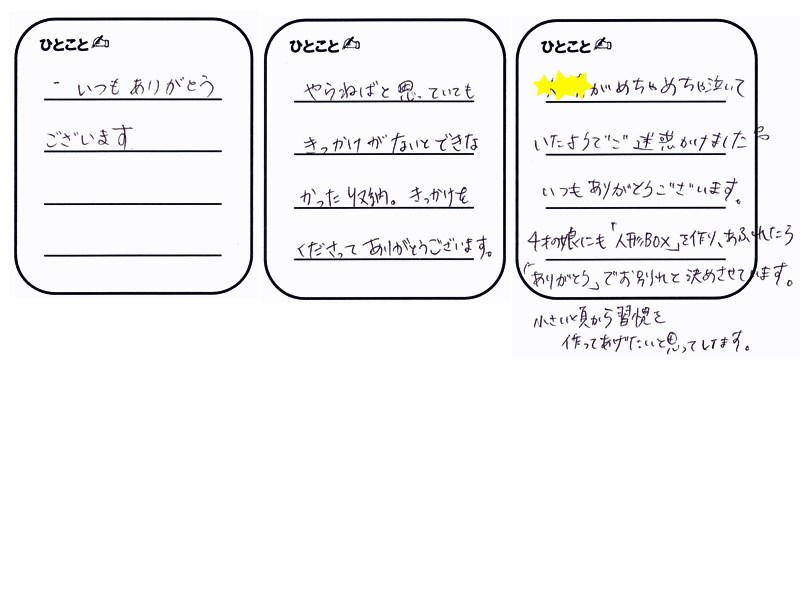 ひとこと✍
いつもありがとう
ございます
ひとこと✍
やらねばと思っていても
きっかけがないとできな
かった収納。きっかけを
くださってありがとうございます。
ひとこと✍
がめちゃめちゃ泣いて
いたようでご迷惑かけました
いつもありがとうございます。
4才の娘にも「人形BOX」を作り、あふれたら
「ありがとう」でお別れと決めさせています。
小さい頃から習慣を
作ってあげたいと思ってします。